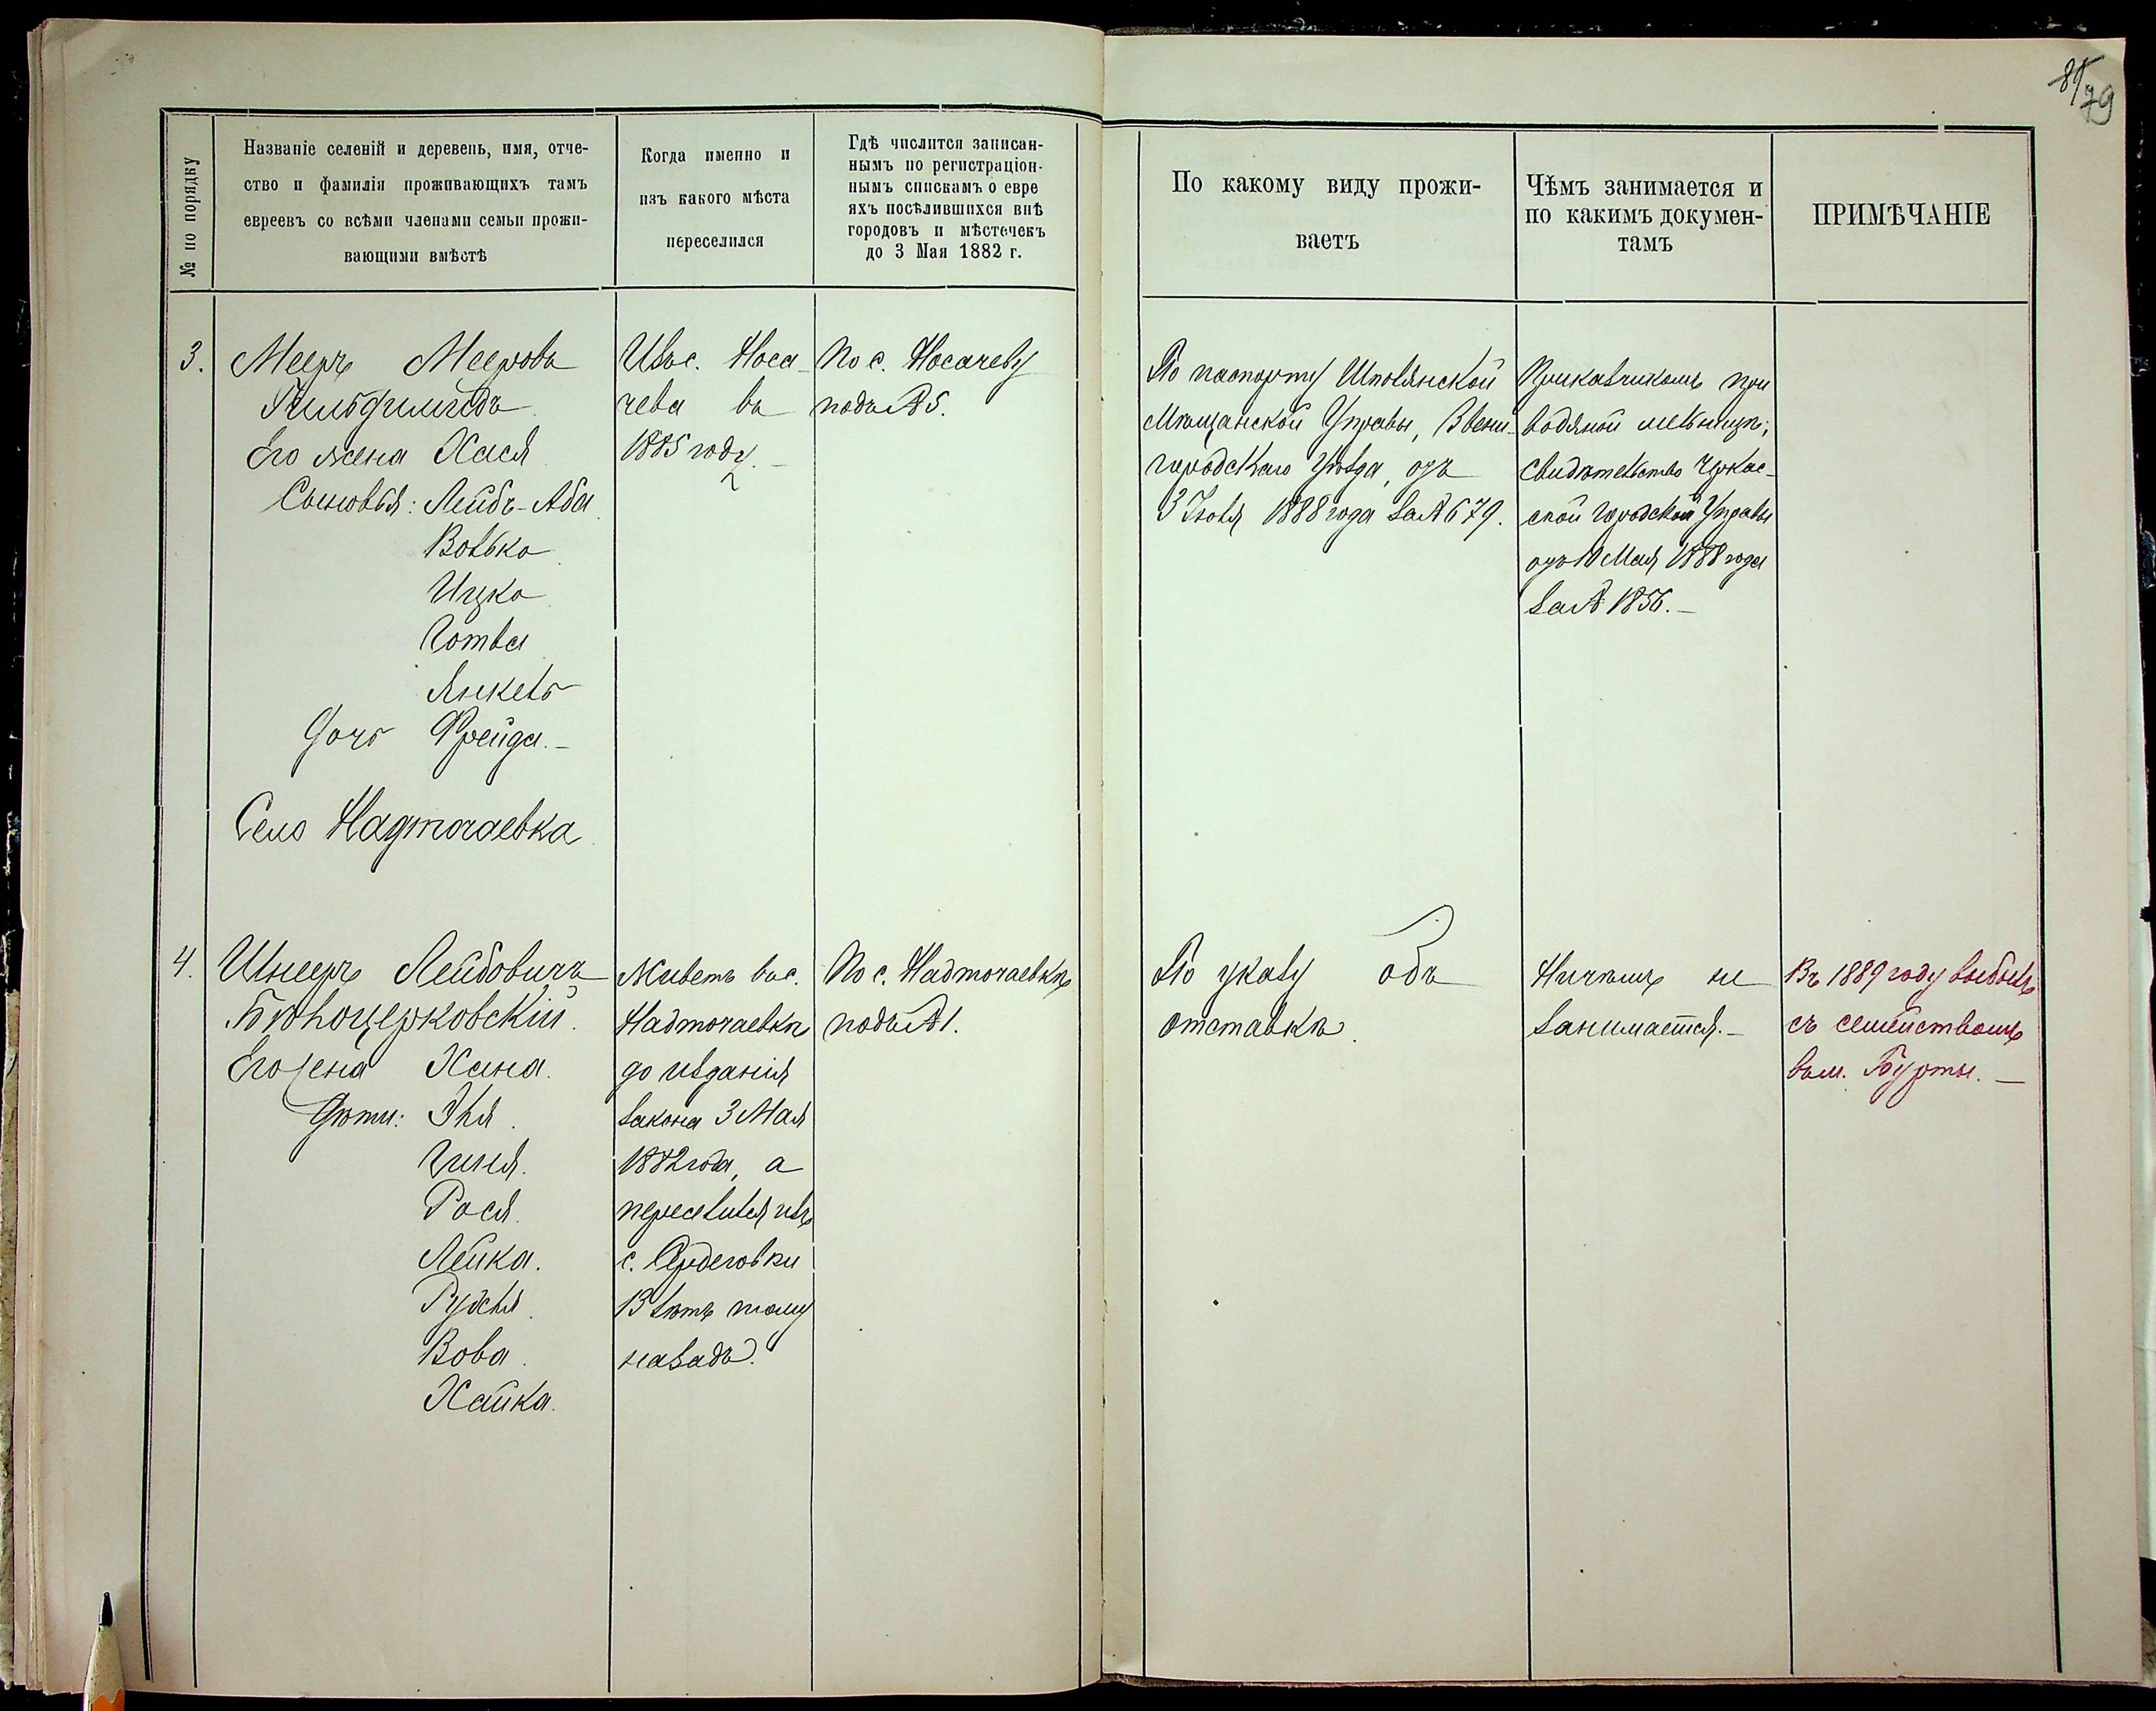 81/79
№ по порядку
Названіе селеній и деревень, имя, отче-
ство и фамилія проживающихъ тамъ
евреевъ со всѣми членами семьи прожи-
вающими вмѣстѣ
Когда именно и
изъ какого мѣста
переселился
Гдѣ числится записан-
нымъ по регистраціон-
нымъ спискамъ о евре
яхъ посѣлившихся внѣ
городовъ и мѣстечекъ
до 3 Мая 1882 г.
По какому виду прожи-
ваетъ
Чѣмъ занимается и
по какимъ докумен-
тамъ
ПРИМѢЧАНІЕ
3.
Мееръ Мееровъ
Его жена Хася
Сыновья: Лейбъ-Аба
Волько
Ицко
Янкель
Дочь Фрейда.–
Изъ с. Носа-
чева въ
1885 году.–
По с. Носачеву
подъ № 5.
По паспорту Шполянской
Мѣщанской Управы, Звени-
городскаго Уѣзда, отъ
3 Іюля 1888 года за № 679.
Прикащикомъ при
водяной мельницѣ;
свидѣтельство Черкас-
ской Городской Управы
Мая 1888 года
за № 1856.–
Село Надточаевка
4.
Шнееръ Лейбовичъ
Бѣлоцерковскій.
Его жена Хана.
Дѣти: Эля.
Рося.
Лейка.
Вова.
Хайка.
Живетъ въ с.
Надточаевкѣ
до изданія
закона 3 Мая
1882 года, а
переселился изъ
с. Сердеговки
13 лѣтъ тому
назадъ.
По с. Надточаевкѣ
подъ № 1.
По указу объ
отставкѣ.
Ничѣмъ не
занимается.–
Въ 1889 году выбылъ
съ семействомъ
въ м. Бурты.–